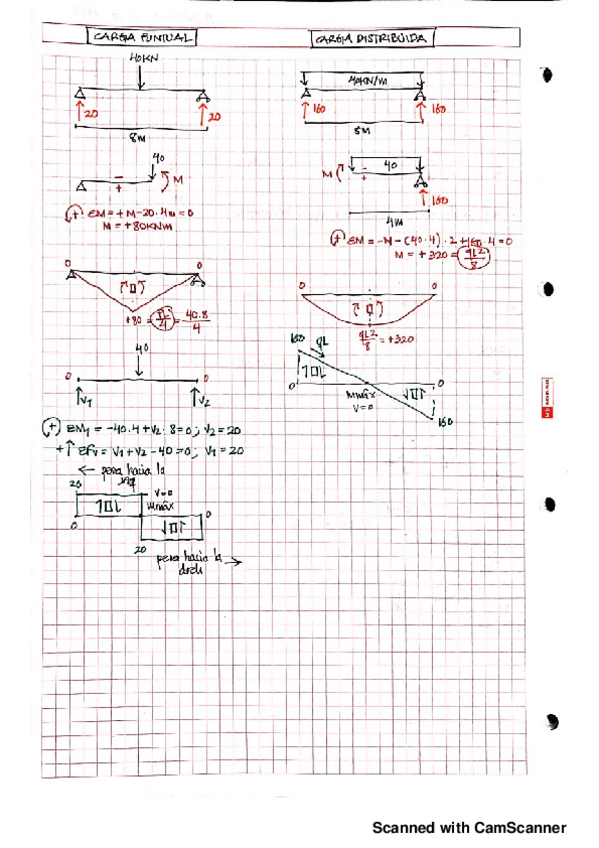 CARGA PUNTUAL
40KN
20
20
8m
40
-
+
M
(+) ΣM = +M-20·4m=0
M = +80KNm
0
0
+80 = PL/4 = 40·8/4
40
0
0
V1
V2
(+) ΣM1 = -40·4+V2·8=0; V2=20
+↑ ΣFV = V1+V2-40=0; V1=20
← pesa hacia la izq
20
V=0
Mmáx
0
0
20
pesa hacia la drch →
CARGA DISTRIBUIDA
40KN/m
160
160
8m
M
-
+
40
160
4m
(+) ΣM = -M-(40·4)·2+160·4=0
M = +320 = qL²/8
0
0
qL²/8 = +320
160
qL
0
0
Mmáx
V=0
160
Scanned with CamScanner